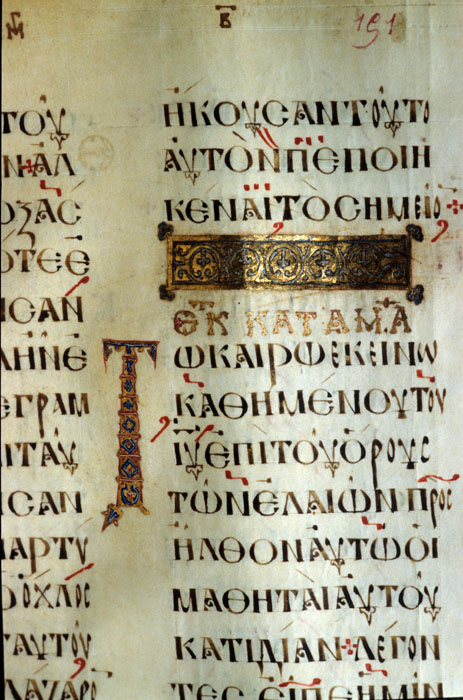 Β
191
ΤΟΥ
Ν+ΑΛ
ΟΞΑC
ΟΤΕΕ
ΙCΑΝ
ΑΗΝΕ
ΕΓΡΑΜ
ΙΤΑΥ
ΙCΑΝ
ΑΡΤΥ
ΟΧΛΟC
ΤΑΥΤΟΥ
ΛΑΖΑΡ
ἨΚΟΥCΑΝΤΟΥΤΟ
ΑΥΤῸΝΠΕΠΟΙΗ
ΚΕΝΑΪΤΟCΗΜΕΙΟ+
ΕΚ ΚΑΤΑ ΜΑ
ΤΩΚΑΙΡΩΕΚΕΙΝΩ
ΚΑΘΗΜΕΝΟΥΤΟΥ
ΙΥΕΠΙΤΟΥΟΡΟΥC
ΤΩΝΕΛΑΙΩΝΠΡΟC
ΗΛΘΟΝΑΥΤΩΟΙ
ΜΑΘΗΤΑΙΑΥΤΟΥ
ΚΑΤΙΔΙΑΝ+ΛΕΓΟΝ
ΤΕCΕΙΠΕΗΜΙΝ